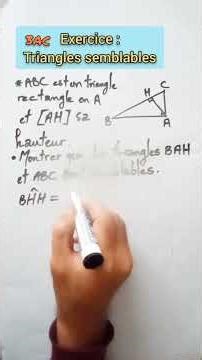 3AC Exercice :
Triangles semblables
* ABC est un triangle
rectangle en A
et [AH] sa
hauteur
• Montrer que les triangles BAH
et ABC semblables.
BĤH =
C
H
B
A